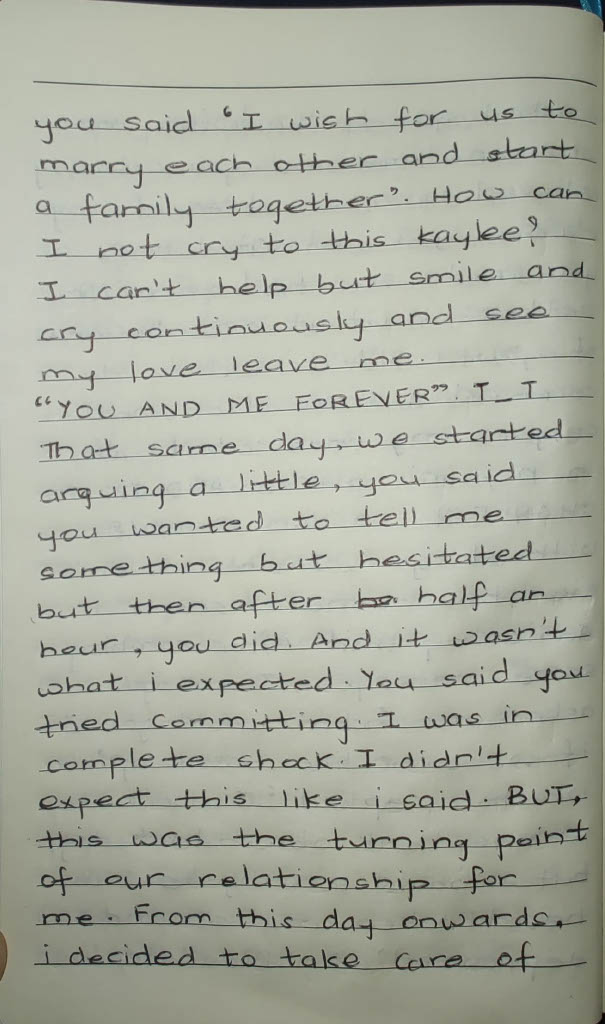 you said ‘I wish for us to
marry each other and start
a family together’. How can
I not cry to this kaylee?
I can't help but smile and
cry continuously and see
my love leave me.
“YOU AND ME FOREVER”. T_T
That same day, we started
arguing a little, you said
you wanted to tell me
something but hesitated
but then after half an
hour, you did. And it wasn't
what i expected. You said you
tried committing. I was in
complete shock. I didn't
expect this like i said. BUT,
this was the turning point
of our relationship for
me. From this day onwards,
i decided to take care of